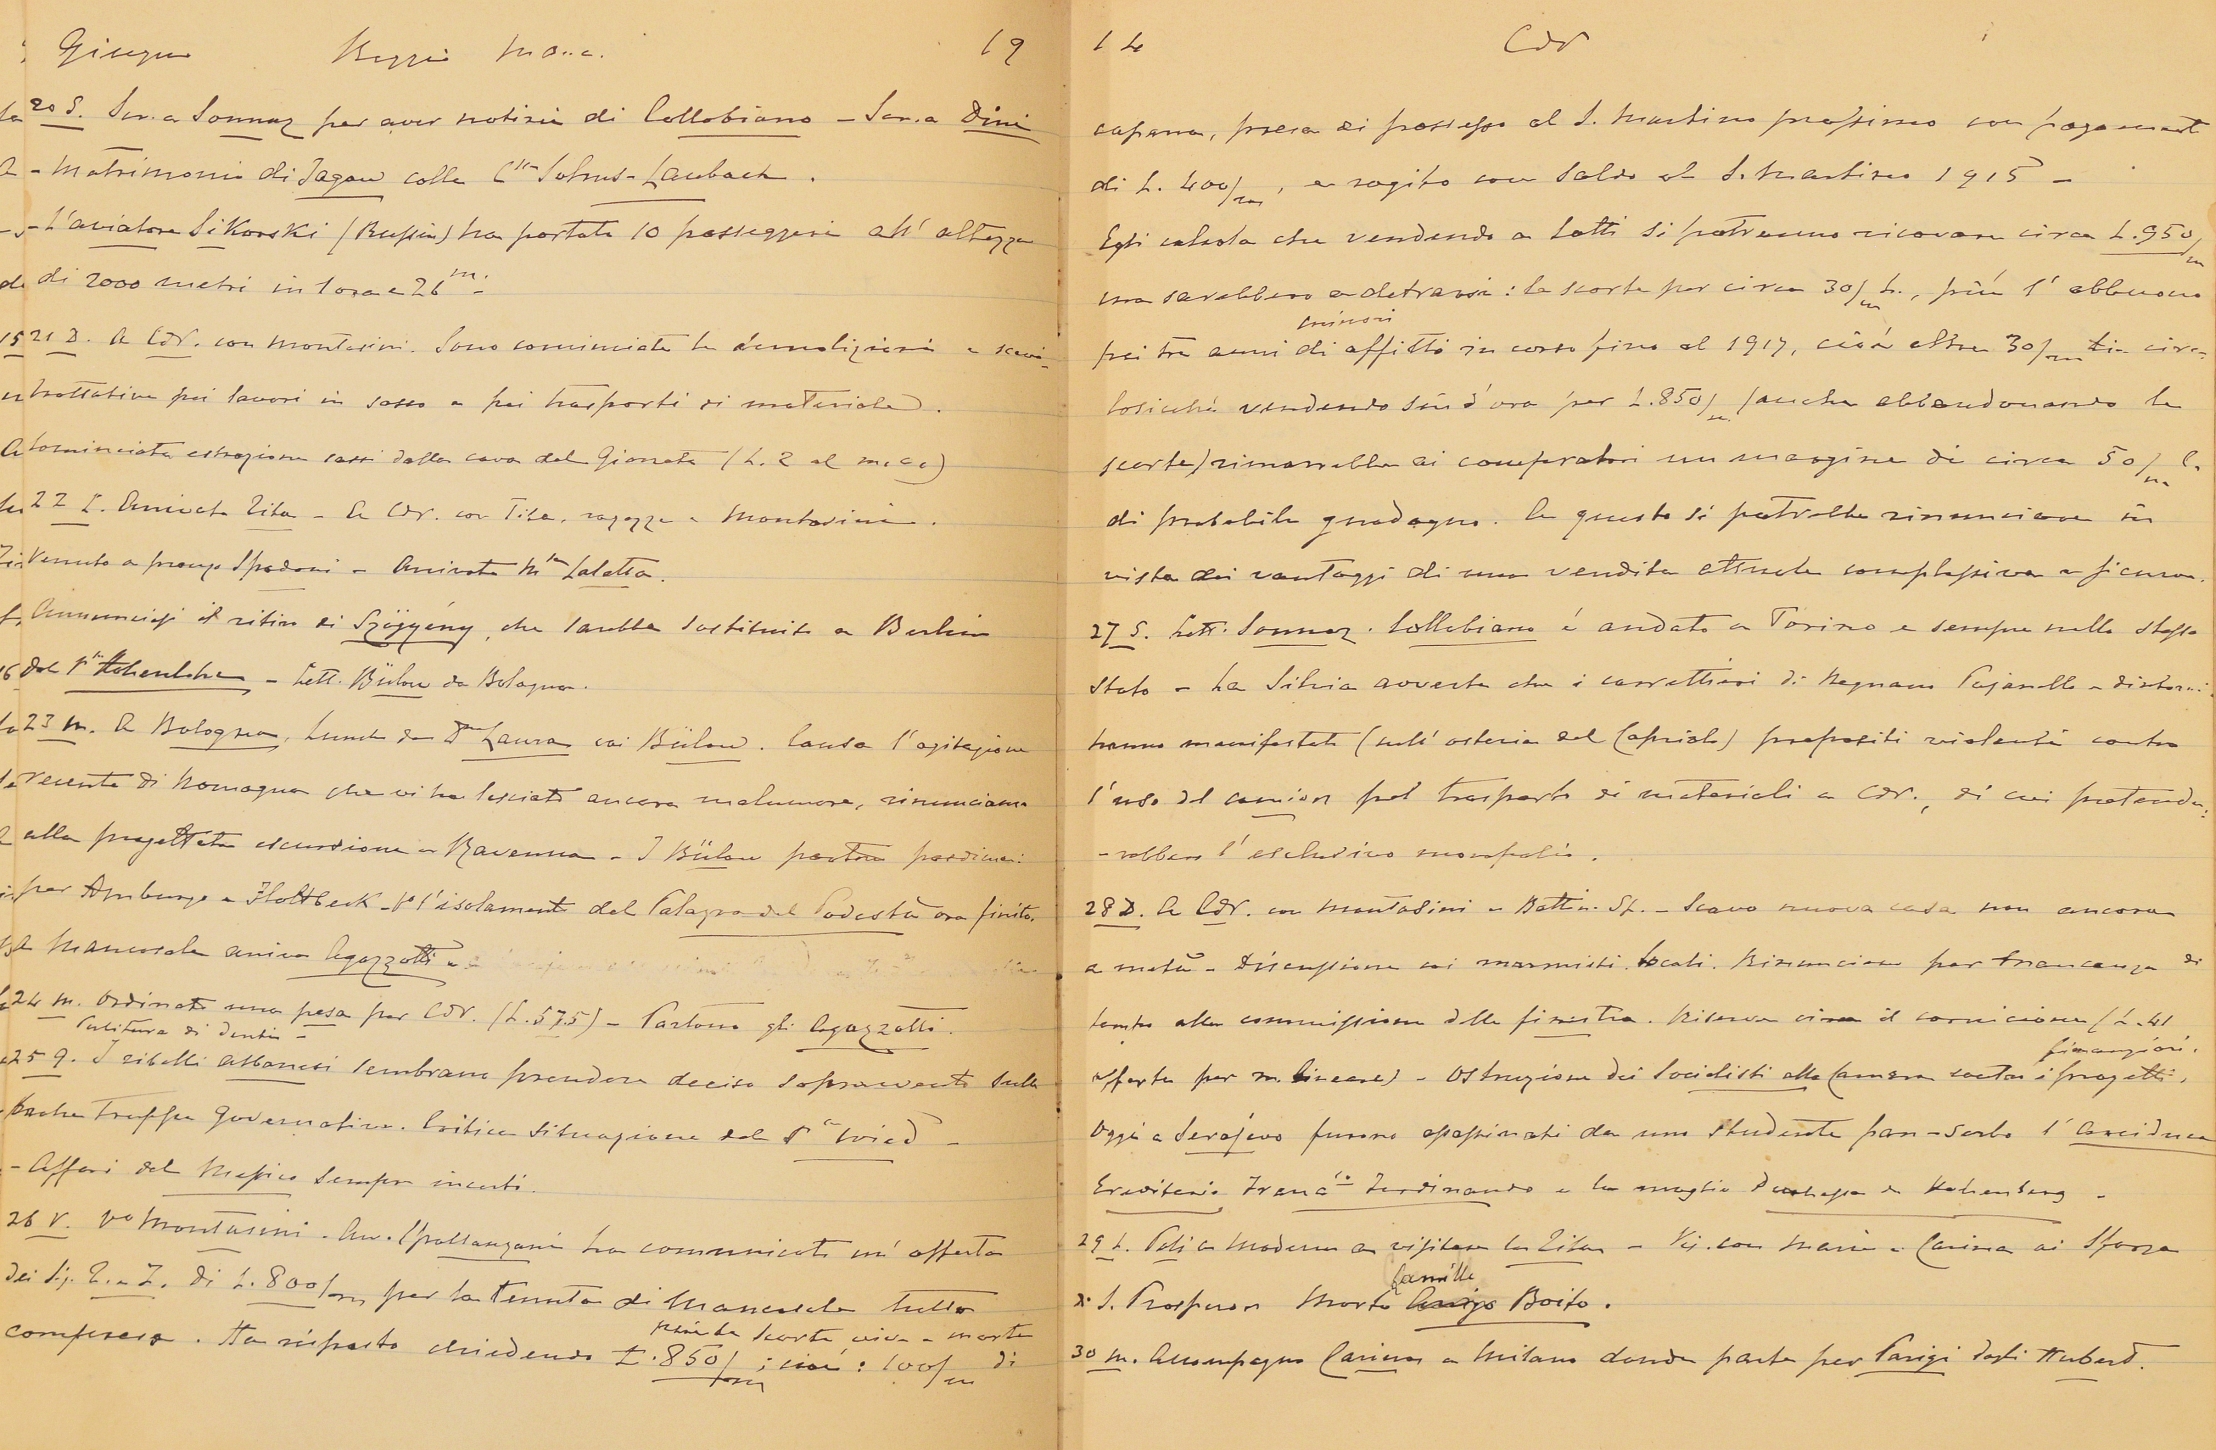 Giugno Reggio Manc. 19
20 S. Scr. a Sonnaz per aver notizie di Collobiano - Scr. a Dini
- Matrimonio di Jagow colla C.ssa Solms-Laubach.
- L'aviatore Sikorski (Russia) ha portato 10 passeggeri all'altezza
di 2000 metri in 1 ora e 26 m.
21 D. A CdV. con Montasini. Sono cominciate le demolizioni e scavi
trattative pei lavori in sasso e pei trasporti di materiale.
Cominciata estrazione sassi dalla cava del (L. 2 al m.c.)
22 L. Arrivata Tita - A CdV. con Tita, ragazze e Montasini.
Venuto a pranzo Spadoni - Arrivata M.sa Lalatta.
Annunciasi il ritiro di Szögyény, che sarebbe sostituito a Berlino
dal P. Hohenlohe - Lett. Bülow da Bologna.
23 M. A Bologna, lunch da D. Laura coi Bülow. Causa l'agitazione
recente di Romagna che vi ha lasciato ancora malumore, rinunciamo
alla progettata escursione a Ravenna - I Bülow partono
per Amburgo e Flottbeck - V.º l'isolamento del Palazzo del Podestà ora finito.
A Mancasale arrivo Agazzotti
24 M. Ordinata una pesa per CdV. (L. 575) - Partono gli Agazzotti.
Pulitura di denti -
25 G. I ribelli albanesi sembrano prendere deciso sopravvento sulle
poche truppe governative. Critica situazione del P. Wied -
- Affari del Messico sempre incerti.
26 V. V.º Montasini. Avv. Spallanzani ha comunicato un'offerta
dei Sig. Z. e Z. di L. 800/m per la tenuta di Mancasale tutto
più le scorte vive e morte
compreso. Ha risposto chiedendo L. 850/m; cioè: 100/m di
14 CdV
caparra, presa di possesso al S. Martino prossimo con pagamento
di L. 400/m, e rogito con saldo al S. Martino 1915 -
Egli calcola che vendendo a lotti si potranno ricavare circa L. 950/m
ma sarebbero a detrarsi: le scorte per circa 30/m L., più l'abbuono
minori
pei tre anni di affitti in corso fino al 1917, cioè altre 30/m L. circa
cosicchè vendendo sin d'ora per L. 850/m (anche abbandonando le
scorte) rimarrebbe ai compratori un margine di circa 50/m L.
di probabile guadagno. A questo si potrebbe rinunciare in
vista dei vantaggi di una vendita attuale complessiva e sicura.
27 S. Lett. Sonnaz. Collobiano è andato a Torino e sempre nello stesso
stato - La Silvia avverte che i carrettieri di Regnano Pajanello e dintorni
hanno manifestato (nell'osteria del Capriolo) propositi violenti contro
l'uso del camion pel trasporto di materiali a CdV., di cui pretende-
-rebbero l'esclusivo monopolio.
28 D. A CdV. con Montasini e Battin. Sp. - Scavo nuova casa non ancora
a metà - Discussione coi marmisti locali. Rinunciare per mancanza di
tempo alla commissione delle finestre. Riserva circa il cornicione (L. 41
finanziari.
offerta per m. lineare) - Ostruzione dei Socialisti alla Camera contro i progetti.
Oggi a Serajevo furono assassinati da uno studente pan-serbo l'Arciduca
Ereditario Franc.co Ferdinando e la moglie Duchessa di Hohenberg -
29 L. Poli a Modena a visitare la Tita - Vis. con Maria e Carina ai Sforza
famille
a S. Prospero Morto Arrigo Boito.
30 M. Accompagno Carina a Milano donde parte per Parigi dagli Hubert.